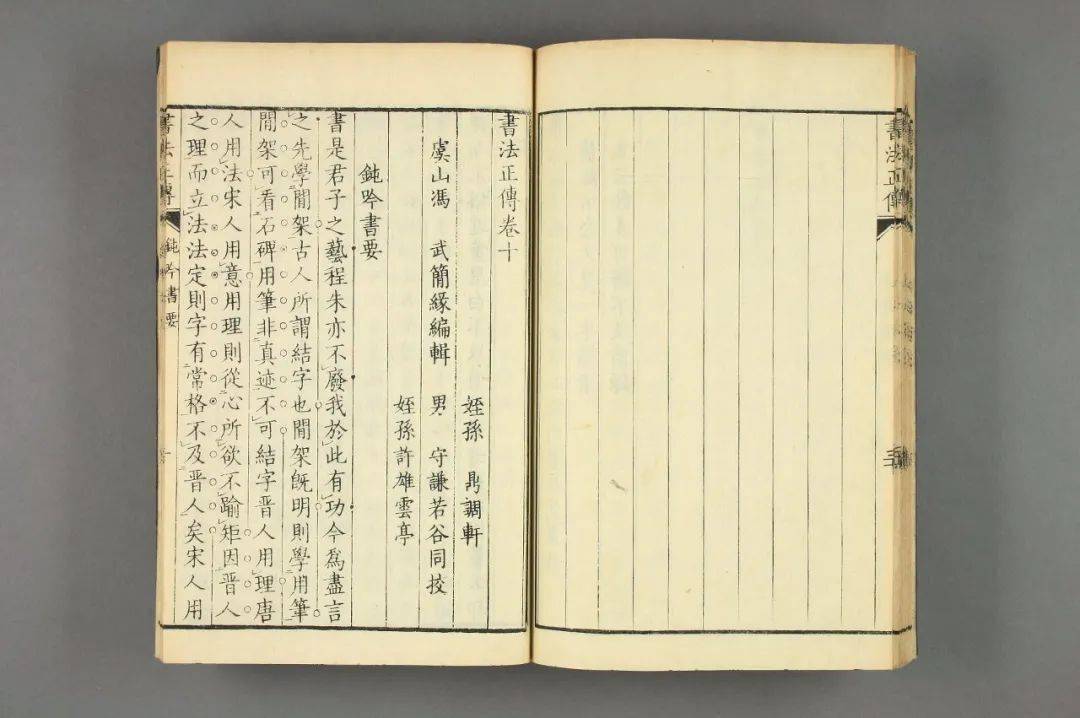 書法正傳
三
書法正傳卷十
姪孫 鼎調軒
虞山馮 武簡緣編輯 男 守謙若谷同挍
姪孫許雄雲亭
鈍吟書要
書是君子之藝程朱亦不廢我於此有功今爲盡言
之先學閒架古人所謂結字也閒架旣明則學用筆
閒架可看石碑用筆非真迹不可結字晉人用理唐
人用法宋人用意用理則從心所欲不踰矩因晉人
之理而立法法定則字有常格不及晉人矣宋人用
書法正傳 鈍吟書要